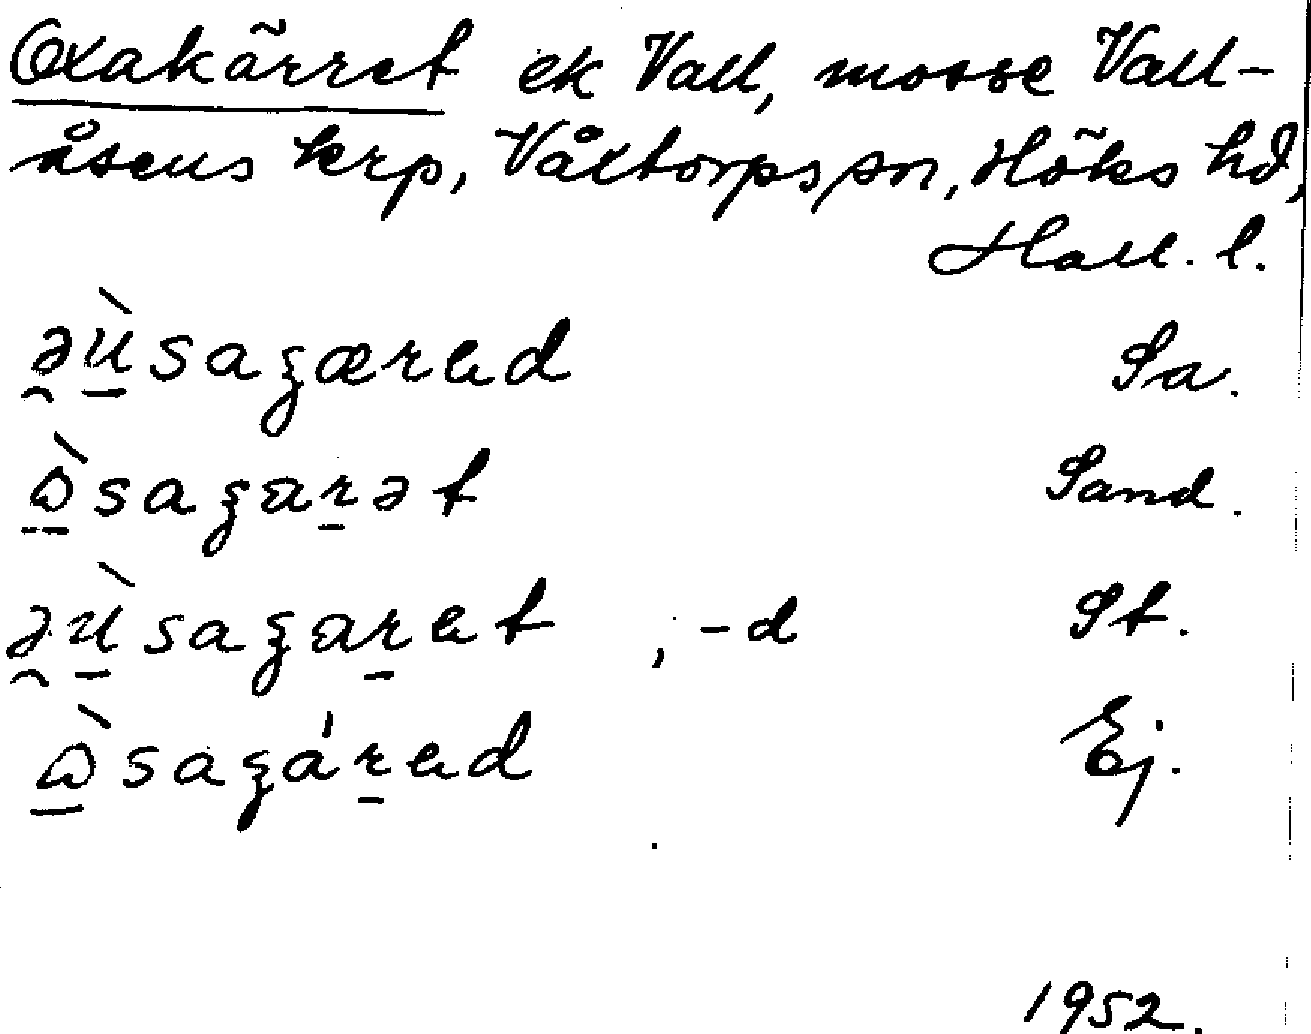 Oxakärret ek Vall, mosse Vall-
åsens krp, Våxtorps sn, Höks hd,
Hall. l.
əù̱sagæräd Sa.
ɷ̱̀sagar̠ət Sand.
əù̱sagar̠ät , -d St.
ɷ̱̀sagár̠äd Ej.
1952.